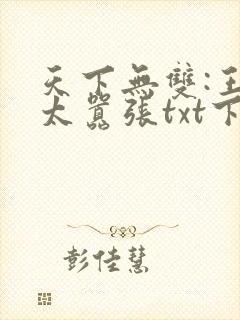 天下無雙:王
太囂張txt下
彭佳慧